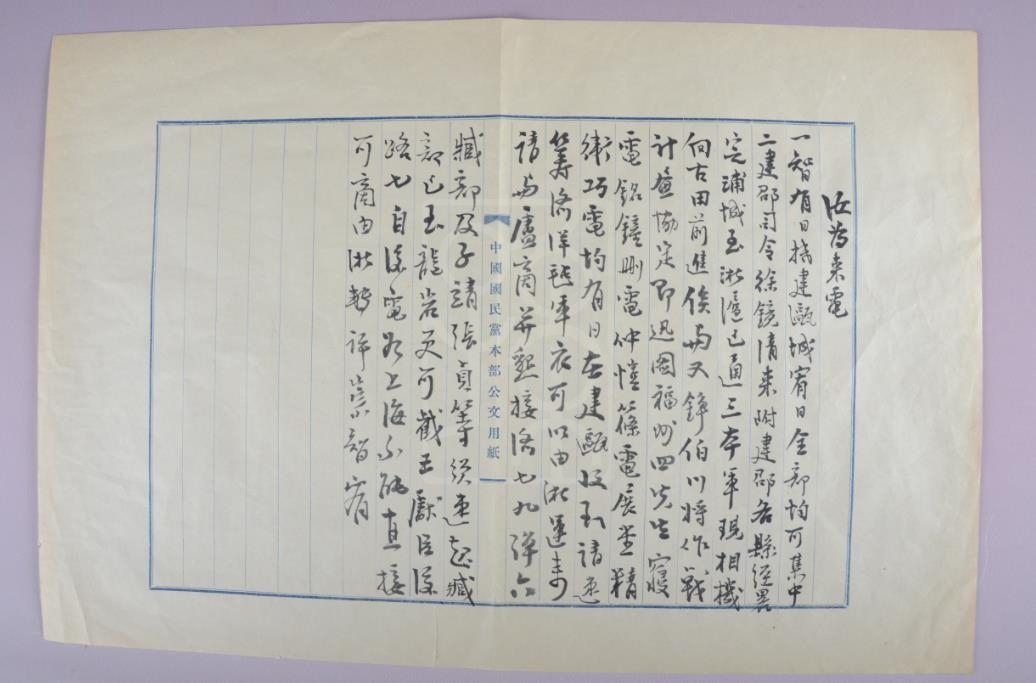 汝為來電
一智有日撫建甌城宥日全部均可集中
二建郡司令徐鏡清來附建郡各縣經畧
完浦城至浙滬已通三本軍現相機
向古田前進俟與又錚伯川將作戰
計畫協定即迅圖福州四先生寢
電銘鐘刪電仲愷篠電展堂精
衛巧電均有日在建甌收到請速
籌洛洋毡軍衣可以由浙運青
請與盧商并懇接洽七九彈六
中國國民黨本部公文用紙
臧部及子靖張貞等須速起臧
部已至龍岩更可截击獻臣後
路七自後電為上海不能直接
可商由浙轉許崇智宥